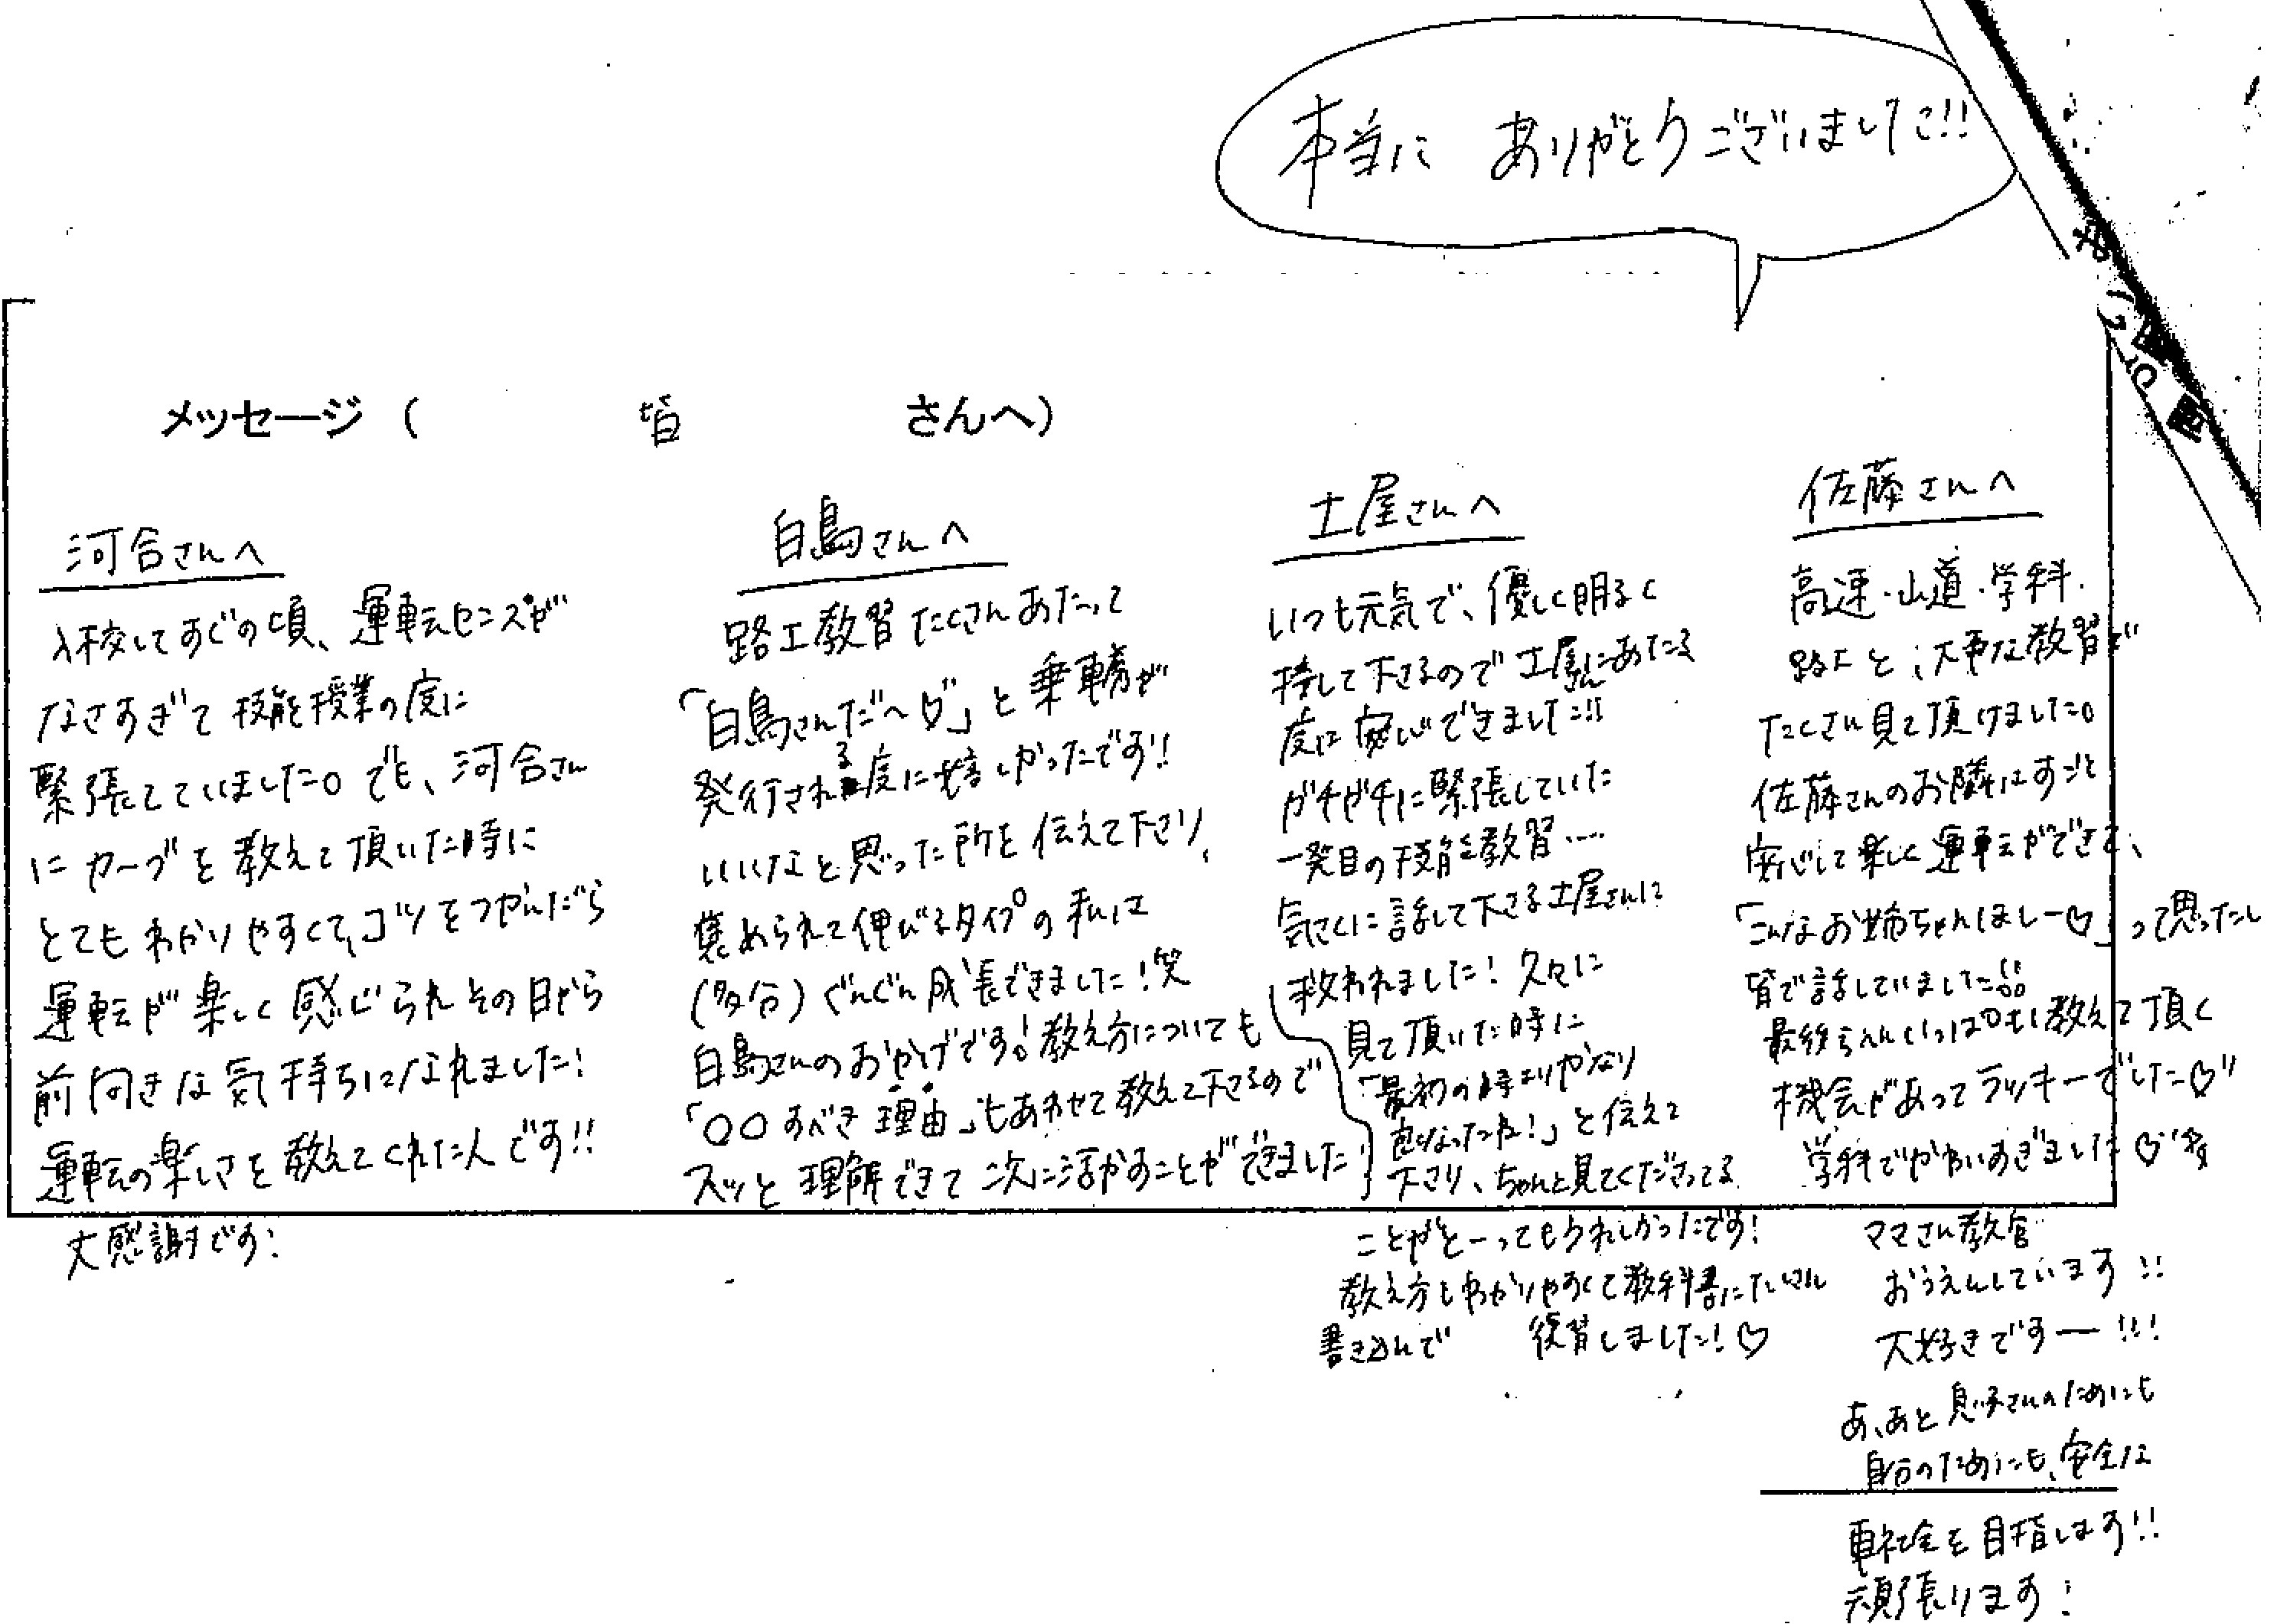 本当に ありがとうございました!!
メッセージ ( 皆 さんへ)
河合さんへ
入校してすぐの頃、運転センスが
なさすぎて 技能授業の度に
緊張していました。でも、河合さん
に カーブを教えて頂いた時に
とても わかりやすくて、コツをつかんだら
運転が 楽しく感じられ その日から
前向きな気持ちになれました!
運転の楽しさを教えてくれた人です!!
大感謝です!
白鳥さんへ
路上教習 たくさんあたって
「白鳥さんだ~♡」と 乗車券が
発行される度に嬉しかったです!!
いいなと思った所を伝えて下さり、
褒められて伸びるタイプの私は
(多分) ぐんぐん成長できました!笑
白鳥さんのおかげです! 教え方についても
「〇〇すべき理由」もあわせて教えて下さるので
スッと理解できて 次に活かすことができました!
土屋さんへ
いつも元気で、優しく明るく
接して下さるので 土屋さんにあたる
度に安心できました!!
ガチガチに緊張していた
一発目の技能教習....
気さくに話して下さる土屋さんに
救われました! 久々に
見て頂いた時に
「最初の時よりかなり
良くなったね!」と伝えて
下さり、ちゃんと見てくださってる
ことがと~ってもうれしかったです!
教え方もわかりやすくて教科書にたくさん
書き込んで 復習しました!♡
佐藤さんへ
高速・山道・学科・
路上と、大事な教習が
たくさん見て頂けました。
佐藤さんのお隣はすごく
安心して楽しく運転ができて、
「こんなお姉ちゃんほしー♡」って思ったし
皆で話していました!!
最後らへんいっぱい教えて頂く
機会があってラッキーでした♡
学科でかわいすぎました♡
ママさん教官
おうえんしています!!
大好きですー!!!
あ、あと息子さんのためにも
自分のためにも、安全な
車社会を目指します!!
頑張ります!